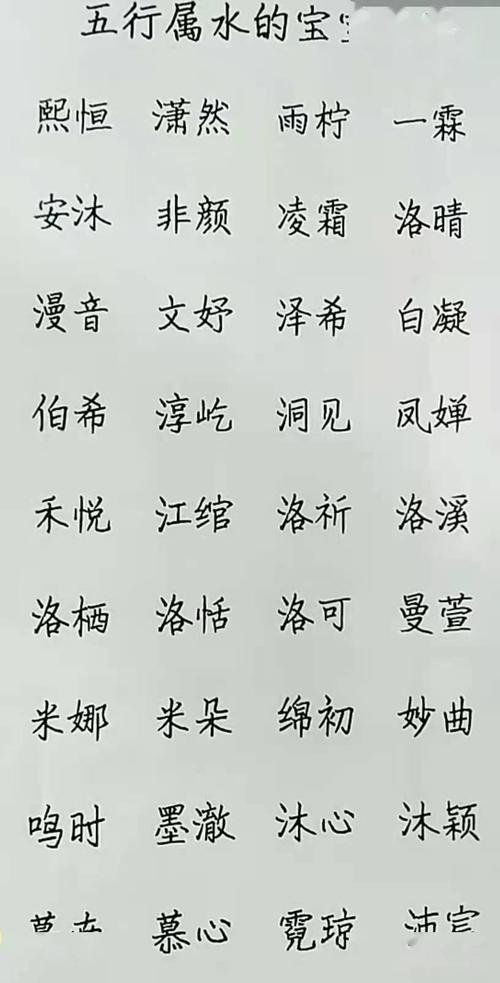 五行属水的宝
熙恒 潇然 雨柠 一霖
安沐 非颜 凌霜 洛晴
漫音 文妤 泽希 白凝
伯希 淳屹 洞见 凤婵
禾悦 江绾 洛祈 洛溪
洛栖 洛恬 洛可 曼萱
米娜 米朵 绵初 妙曲
鸣时 墨澈 沐心 沐颖
慕心 霓琼